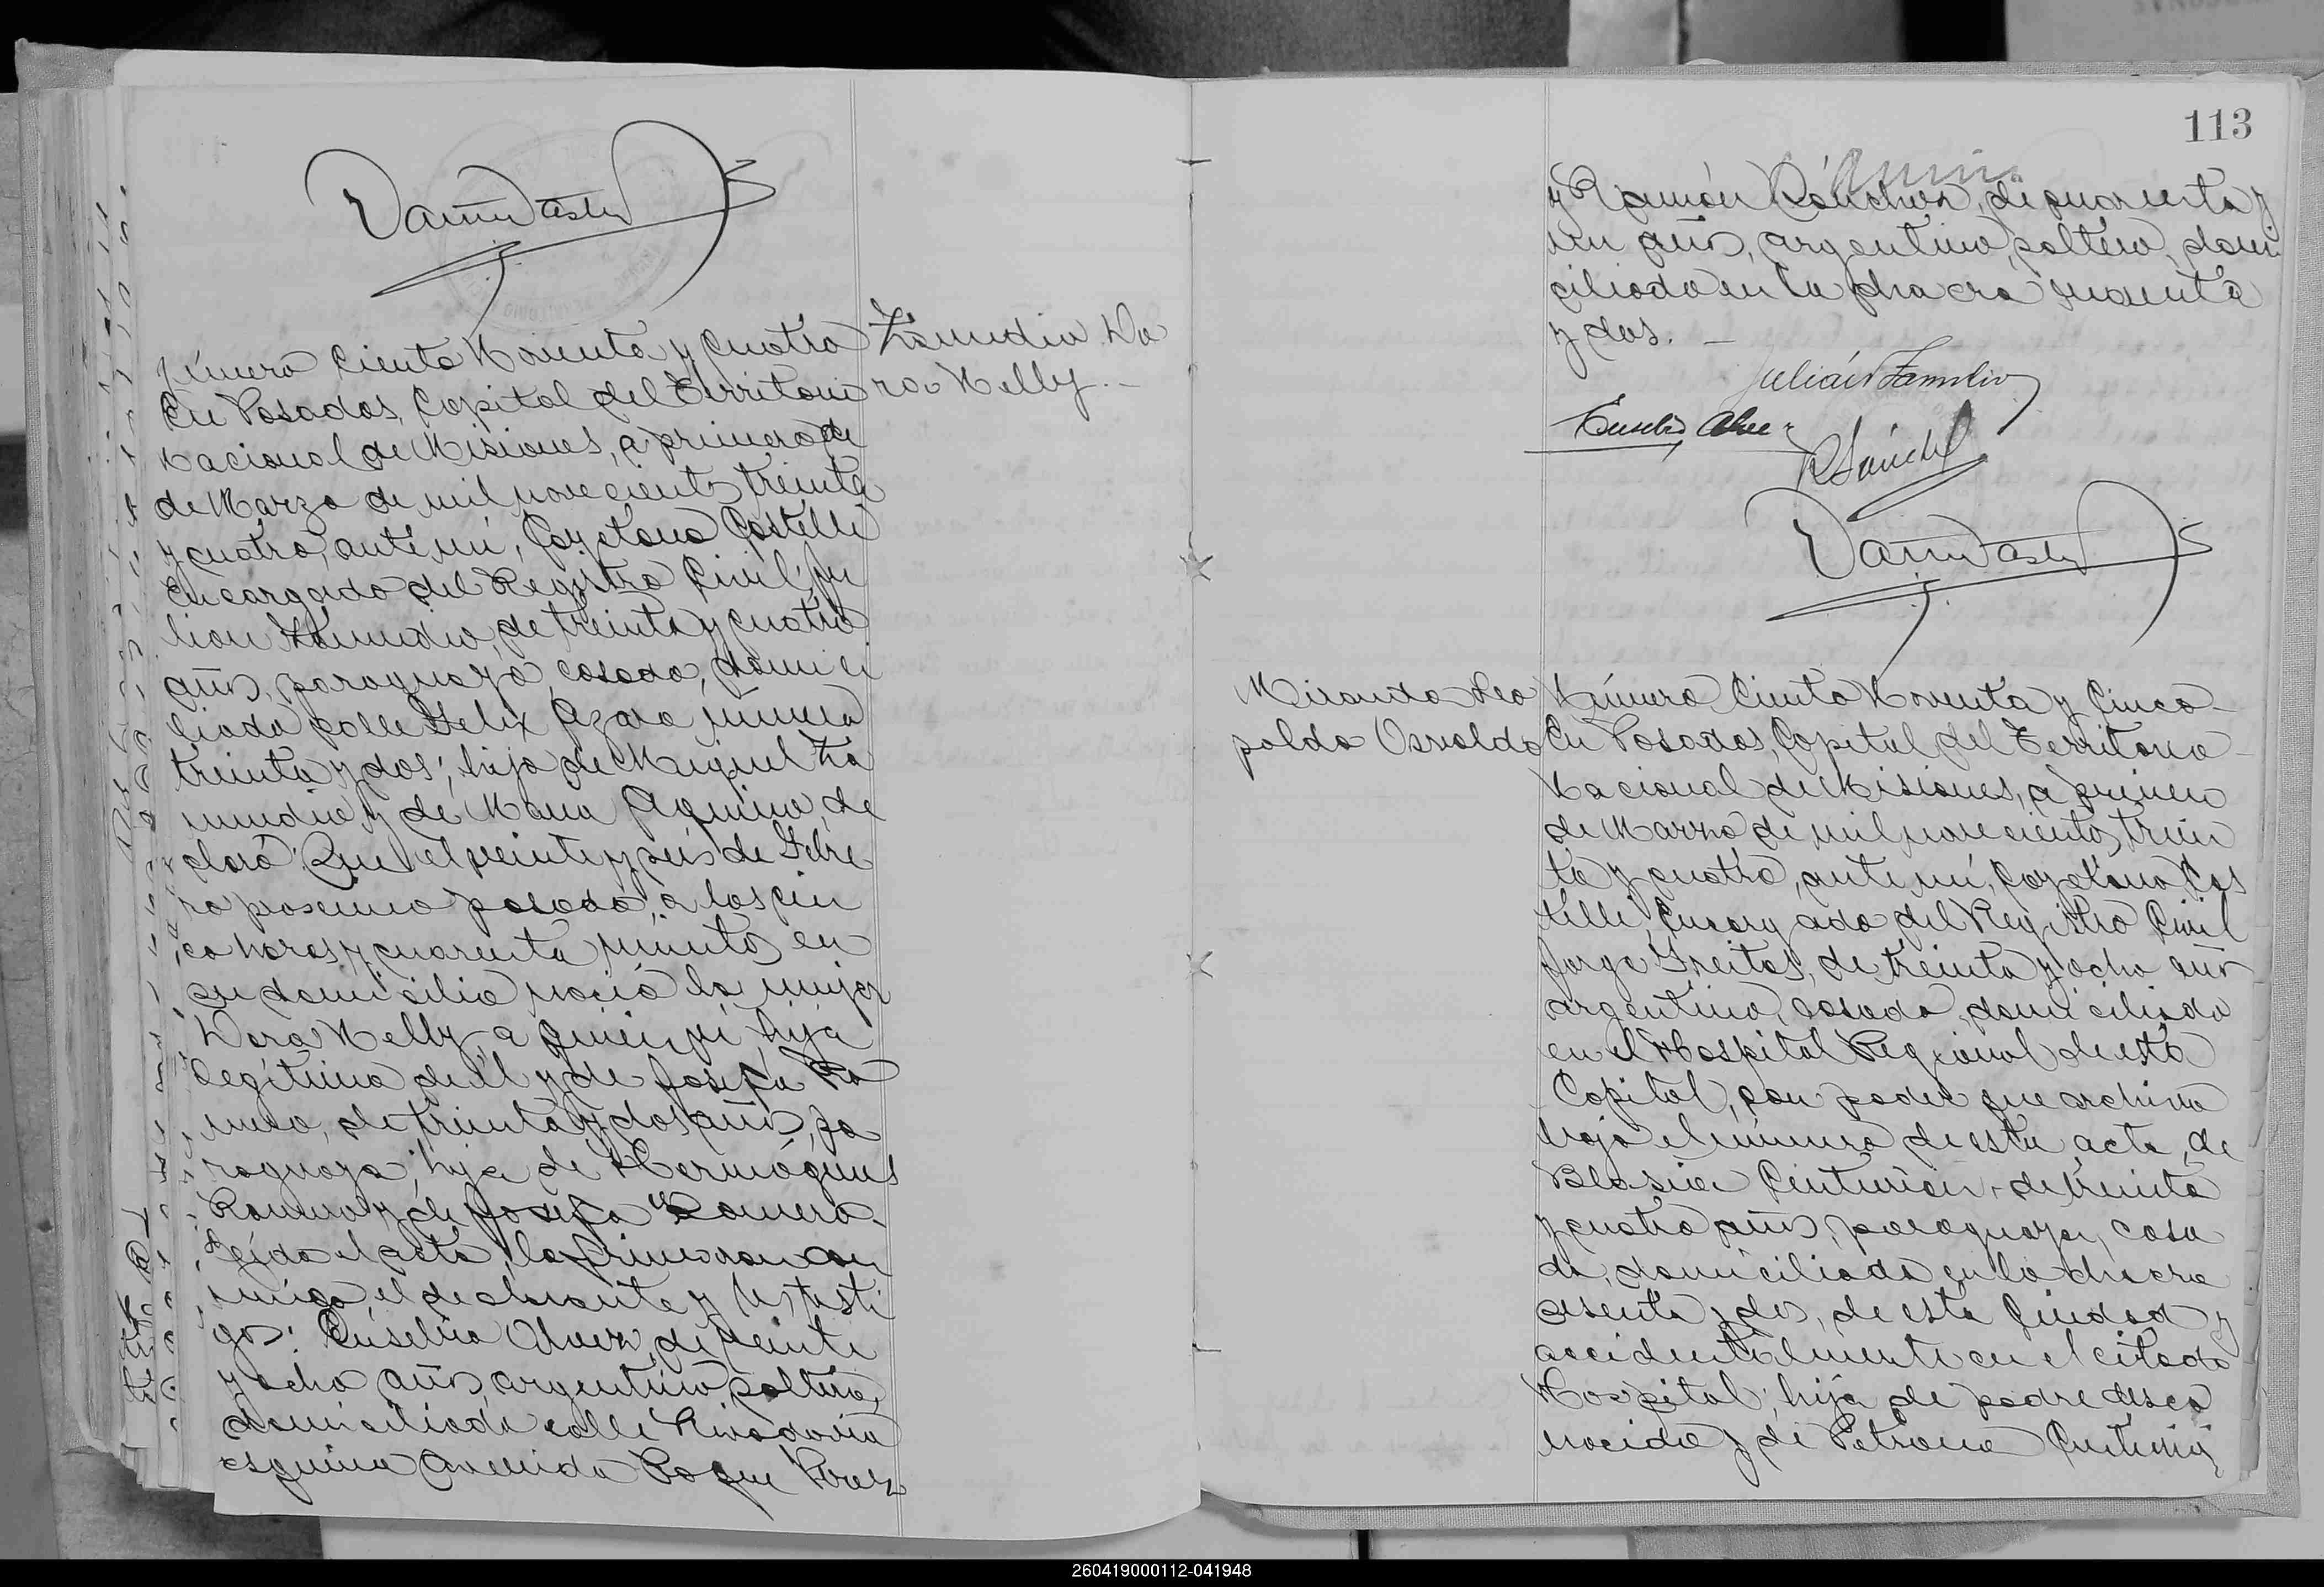 Número Ciento Noventa y Cuatro
En Posadas, Capital del Territorio
Nacional de Misiones, a primero de
de Marzo de mil novecientos treinta
y cuatro, ante mí, Cayetano Castelli
Encargado del Registro Civil, Ju
lian Zamudio, de treinta y cuatro
años, paraguayo, casado, domici
liado calle Felix Azara número
treinta y dos; hijo de Miguel Za
mudio y de Maria Aquino, de
claró: Que el veinte y seis de Febre
ro proximo pasado, a las cin
co horas y cuarenta minutos en
su domicilio nació la mujer
Dora Nelly, a quien vi, hija
legítima de él y de Josefa Ro
mero, de treinta y dos años, pa
raguaya, hija de Hermógenes
Romero y de Josefa Romero.
Leída el acta, la firmaron con
migo, el declarante y los testi
gos: Eusebio Alvez, de veinte
y ocho años, argentino, soltero,
domiciliado calle Rivadavia
esquina Avenida Roque Perez
Zamudio Do
ra Nelly.-
113
y Ramón Sánchez, de cuarenta y
un años, argentino, soltero, domi
ciliado en la chacra sesenta
y dos. -
Julián Zamudio
Eusebio Alvez
R Sánchez
Miranda Leo
poldo Osvaldo
Número Ciento Noventa y Cinco-
En Posadas, Capital del Territorio-
Nacional de Misiones, a primero
de Marzo de mil novecientos trein
ta y cuatro, ante mí, Cayetano Cas
telli, Encargado del Registro Civil
Jorge Freitas, de treinta y ocho años
argentino, casado, domiciliado
en el Hospital Regional de esta
Capital, con poder que archivo
bajo el número de esta acta, de
Blasia Centurión, de treinta
y cuatro años, paraguaya, casa
da, domiciliada en la chacra
sesenta y dos, de esta Ciudad y
accidentalmente en el citado
Hospital; hija de padre desco
nocido y de Petrona Centurión
260419000112-041948